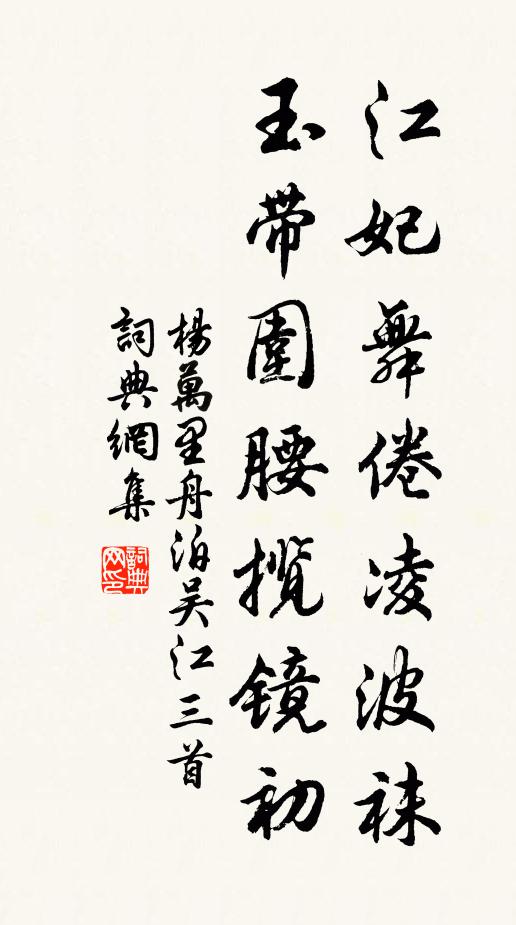 江妃舞倦凌波袜
玉带圍腰揽镜初
楊萬里舟泊吴江三首
詞典網集
詞典网印